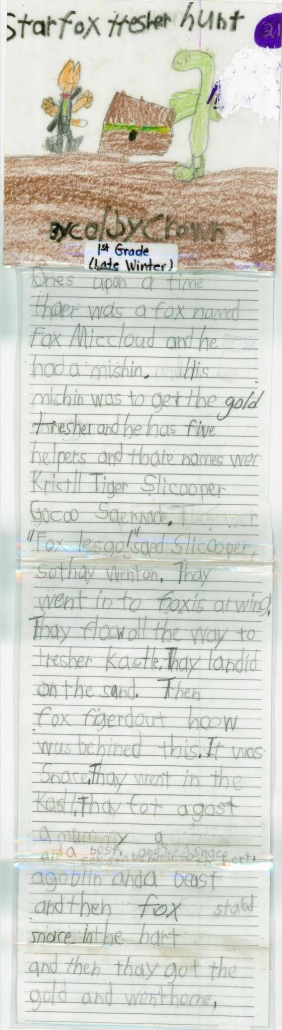 Starfox tresher hunt
21
By colby Crown
1st Grade
(Late Winter)
Ones upon a time
thaer was a fox named
Fox Miccloud and he
had a mishin. His
mishin was to get the gold
tresher and he has five
helpers and thale names wer
Kristll Tiger Slicooper
Gocoo
"Fox lesgo!" saed Slicooper,
so thay wenton. Thay
went in to foxis arwing.
Thay floow oll the way to
tresher Kastle. Thay landid
on the sand. Then
fox figerdout hoow
was behined this. It was
Snace. Thay went in the
Kasl. Thay fot agast
a mummy a
and a
agoblin anda beast
and then fox stabd
snace in the hart
and then thay got the
gold and wenthome.